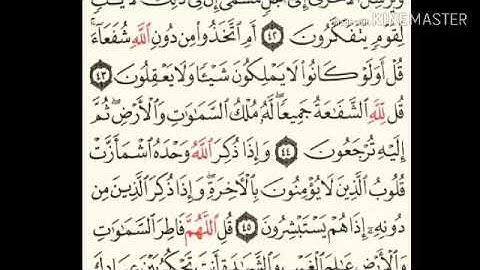 KINEMASTER
وَيُرْسِلُ ٱلْأُخْرَىٰٓ إِلَىٰٓ أَجَلٍ مُّسَمًّى إِنَّ فِى ذَٰلِكَ لَءَايَٰتٍ
لِّقَوْمٍ يَتَفَكَّرُونَ ٤٢ أَمِ ٱتَّخَذُوا۟ مِن دُونِ ٱللَّهِ شُفَعَآءَ ۚ
قُلْ أَوَلَوْ كَانُوا۟ لَا يَمْلِكُونَ شَيْـًٔا وَلَا يَعْقِلُونَ ٤٣
قُل لِّلَّهِ ٱلشَّفَٰعَةُ جَمِيعًا ۖ لَّهُۥ مُلْكُ ٱلسَّمَٰوَٰتِ وَٱلْأَرْضِ ۖ ثُمَّ
إِلَيْهِ تُرْجَعُونَ ٤٤ وَإِذَا ذُكِرَ ٱللَّهُ وَحْدَهُ ٱشْمَأَزَّتْ
قُلُوبُ ٱلَّذِينَ لَا يُؤْمِنُونَ بِٱلْءَاخِرَةِ ۖ وَإِذَا ذُكِرَ ٱلَّذِينَ مِن
دُونِهِۦٓ إِذَا هُمْ يَسْتَبْشِرُونَ ٤٥ قُلِ ٱللَّهُمَّ فَاطِرَ ٱلسَّمَٰوَٰتِ
وَٱلْأَرْضِ عَٰلِمَ ٱلْغَيْبِ وَٱلشَّهَٰدَةِ أَنتَ تَحْكُمُ بَيْنَ عِبَادِكَ